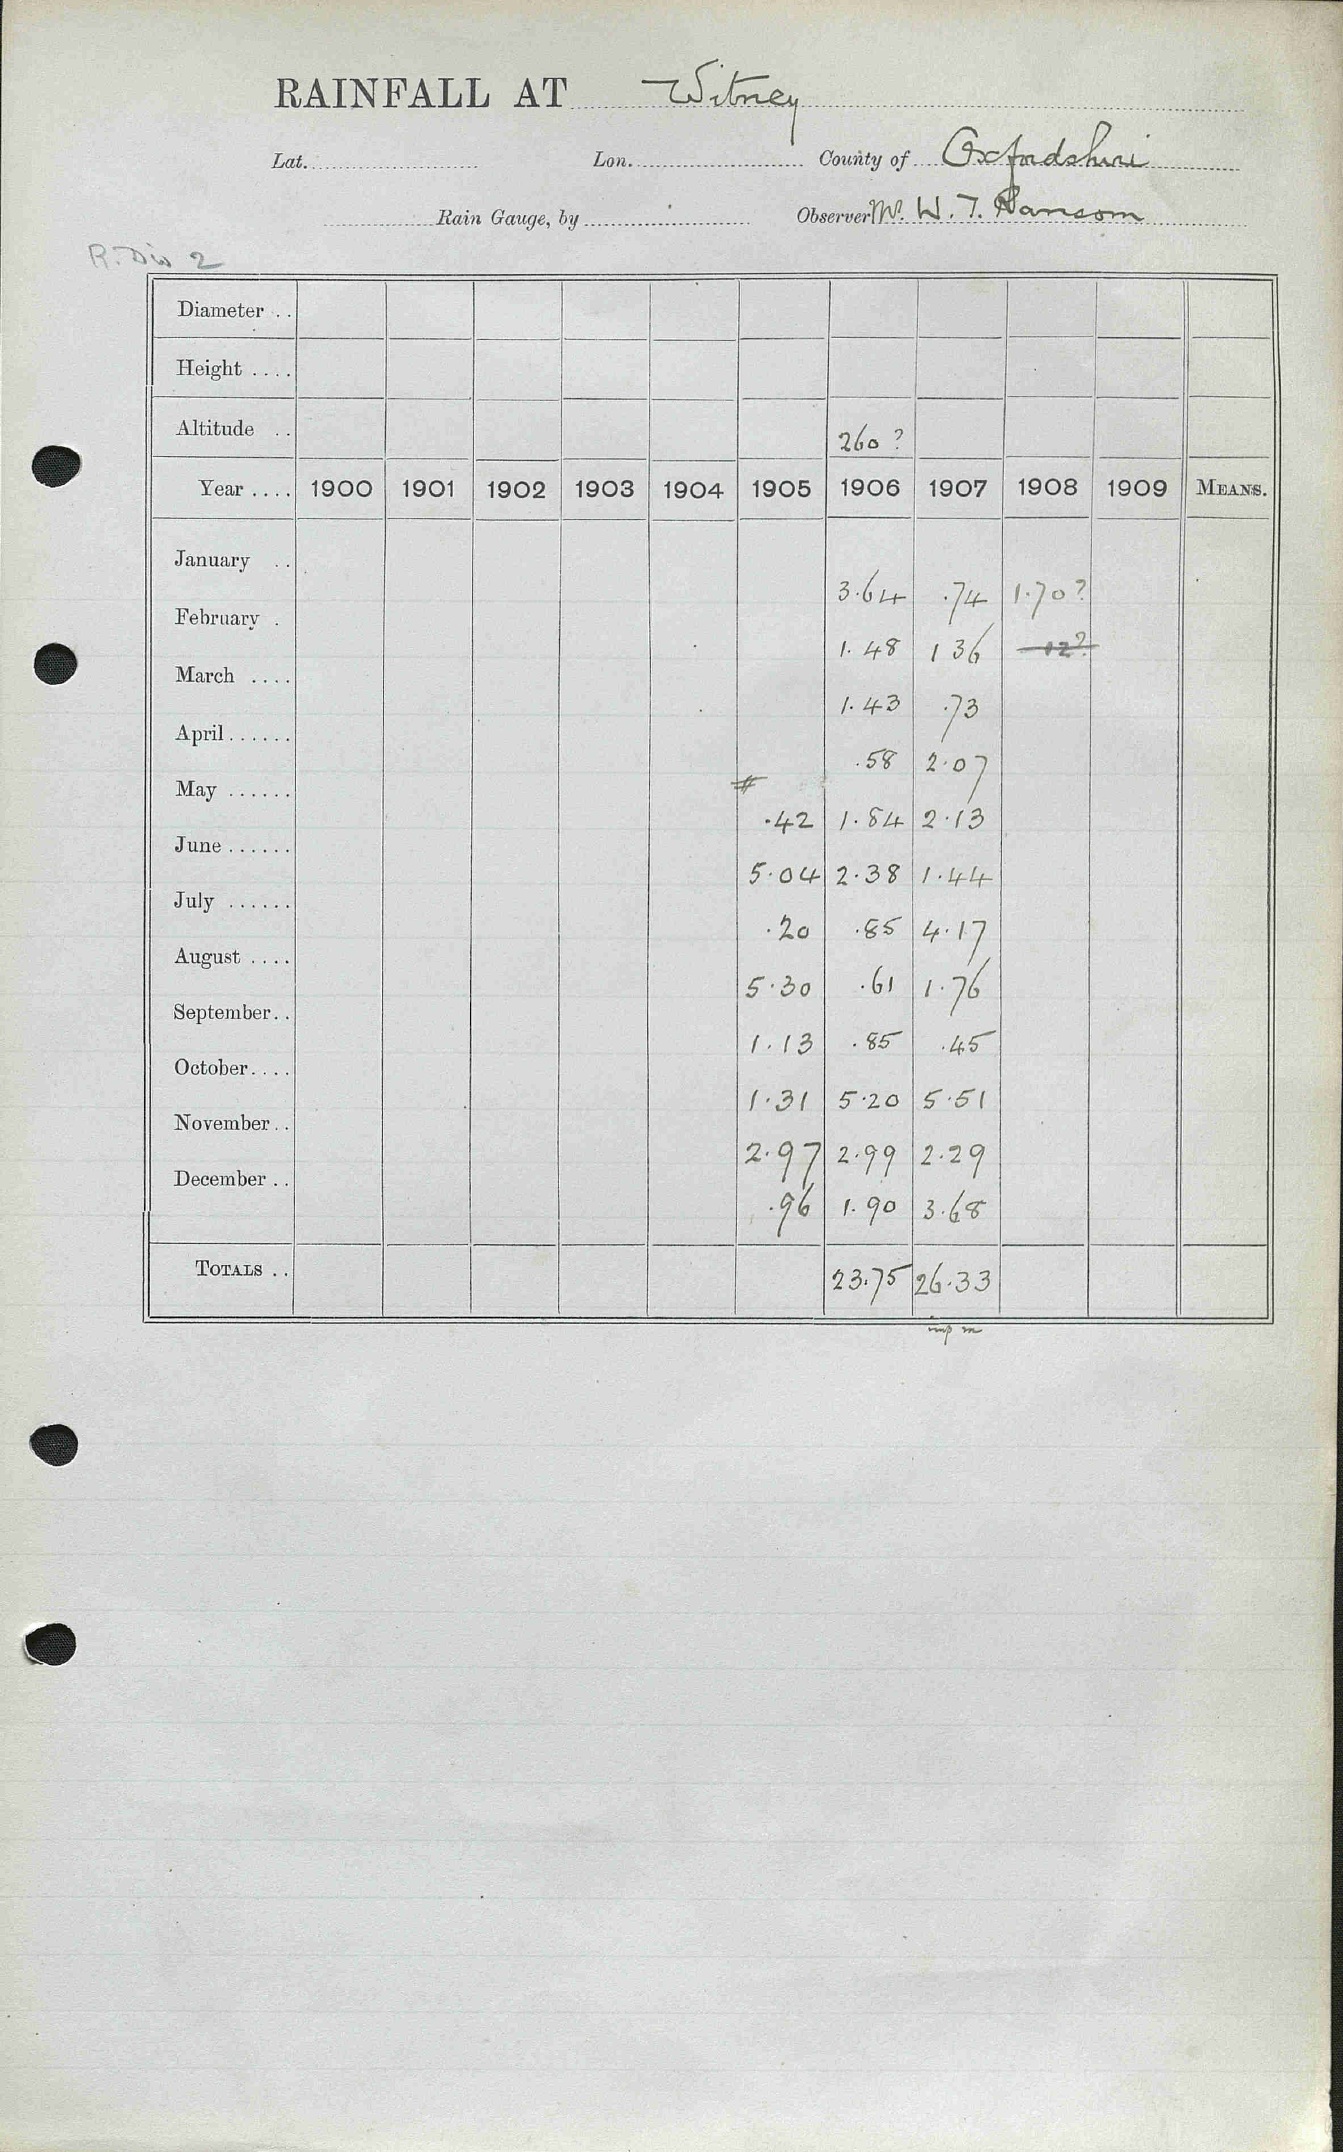 RAINFALL AT Witney
Lat. Lon. County of Oxfordshire
Rain Gauge, by Observer Mr. W. T. Ransom
R. Div 2
Diameter ..
Height ....
Altitude .. 260?
Year .... 1900 1901 1902 1903 1904 1905 1906 1907 1908 1909 MEANS.
January .. 3.64 .74 1.70?
February . 1.48 1 36 12?
March .... 1.43 .73
April ...... .58 2.07
#
May ...... .42 1.84 2.13
June ...... 5.04 2.38 1.44
July ...... .20 .85 4.17
August .... 5.30 .61 1.76
September.. 1.13 .85 .45
October.... 1.31 5.20 5.51
November.. 2.97 2.99 2.29
December .. .96 1.90 3.68
TOTALS .. 23.75 26.33